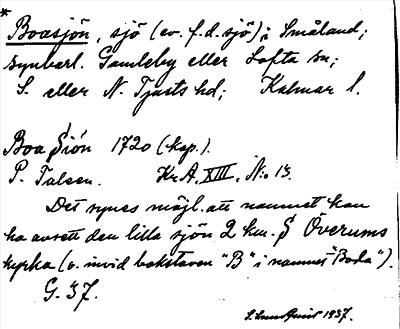 * Boasjön, sjö (ev. f.d. sjö) i Småland;
synbarl. Gamleby eller Lofta sn;
S. eller N. Tjusts hd; Kalmar l.
Boa Siön 1720 (kop.).
P. Talsen. Kr.A. XIII. N:o 13.
Det synes möjl. att namnet kan
ha avsett den lilla sjön 2 km. S Överums
kyrka (o. invid bokstaven "B" i namnet "Boda").
G. 37.
1937.